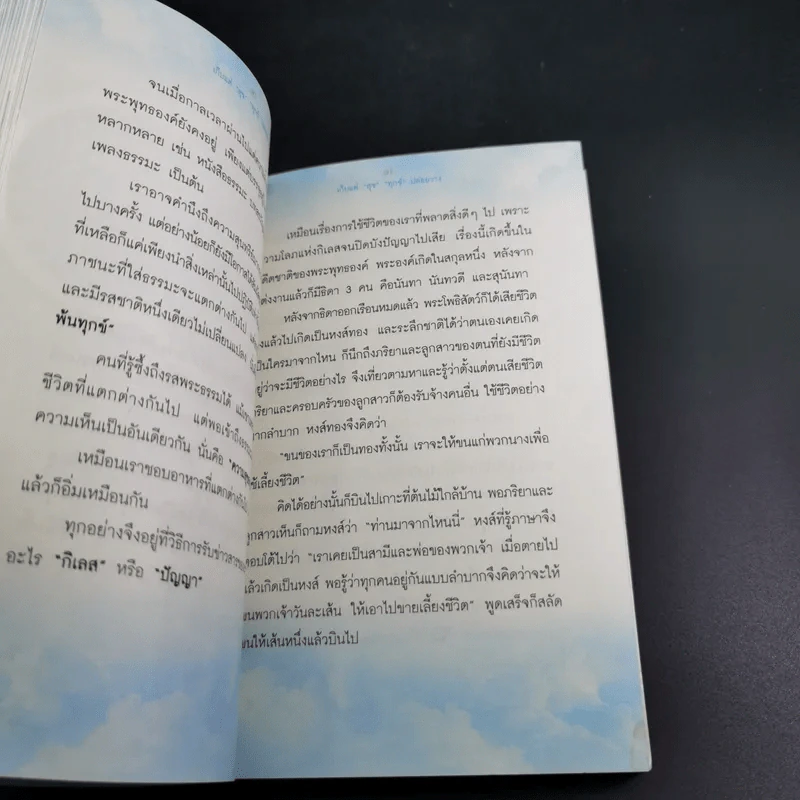 เก็บแต่ "สุข"
จนเมื่อกาลเวลาผ่านไป
พระพุทธองค์ยังคงอยู่ เพียงแต่
หลากหลาย เช่น หนังสือธรรมะ
เพลงธรรมะ เป็นต้น
เราอาจคำนึงถึงความสุน
ไปบางครั้ง แต่อย่างน้อยก็ยังมีโอกาสได้
ที่เหลือก็แค่เพียงนำสิ่งเหล่านั้นไปปฏิบัติ
ภาชนะที่ใส่ธรรมะจะแตกต่างกันไป
และมีรสชาติหนึ่งเดียวไม่เปลี่ยนแปลง
พ้นทุกข์"
คนที่รู้ซึ้งถึงรสพระธรรมได้
ชีวิตที่แตกต่างกันไป แต่พอเข้าถึง
ความเห็นเป็นอันเดียวกัน นั่นคือ
เหมือนเราชอบอาหารที่แตกต่างกัน
แล้วก็อิ่มเหมือนกัน
ทุกอย่างจึงอยู่ที่วิธีการรับข่าวสาร
อะไร "กิเลส" หรือ "ปัญญา"
เก็บแต่ "สุข" "ทุกข์" ปล่อยวาง
เหมือนเรื่องการใช้ชีวิตของเราที่พลาดสิ่งดีๆ ไป เพราะ
ความโลภแห่งกิเลสจนปิดบังปัญญาไปเสีย เรื่องนี้เกิดขึ้นใน
ดีตชาติของพระพุทธองค์ พระองค์เกิดในสกุลหนึ่ง หลังจาก
ต่งงานแล้วก็มีธิดา 3 คน คือนันทา นันทวดี และสุนันทา
หลังจากธิดาออกเรือนหมดแล้ว พระโพธิสัตว์ก็ได้เสียชีวิต
งแล้วไปเกิดเป็นหงส์ทอง และระลึกชาติได้ว่าตนเองเคยเกิด
ป็นใครมาจากไหน ก็นึกถึงภริยาและลูกสาวของตนที่ยังมีชีวิต
อยู่ว่าจะมีชีวิตอย่างไร จึงเที่ยวตามหาและรู้ว่าตั้งแต่ตนเสียชีวิต
ริยาและครอบครัวของลูกสาวก็ต้องรับจ้างคนอื่น ใช้ชีวิตอย่าง
ากลำบาก หงส์ทองจึงคิดว่า
"ขนของเราก็เป็นทองทั้งนั้น เราจะให้ขนแก่พวกนางเพื่อ
ช้เลี้ยงชีวิต"
คิดได้อย่างนั้นก็บินไปเกาะที่ต้นไม้ใกล้บ้าน พอภริยาและ
ลูกสาวเห็นก็ถามหงส์ว่า "ท่านมาจากไหนนี่" หงส์ที่รู้ภาษาจึง
อบโต้ไปว่า "เราเคยเป็นสามีและพ่อของพวกเจ้า เมื่อตายไป
ล้วเกิดเป็นหงส์ พอรู้ว่าทุกคนอยู่กันแบบลำบากจึงคิดว่าจะให้
ขนพวกเจ้าวันละเส้น ให้เอาไปขายเลี้ยงชีวิต" พูดเสร็จก็สลัด
ขนให้เส้นหนึ่งแล้วบินไป